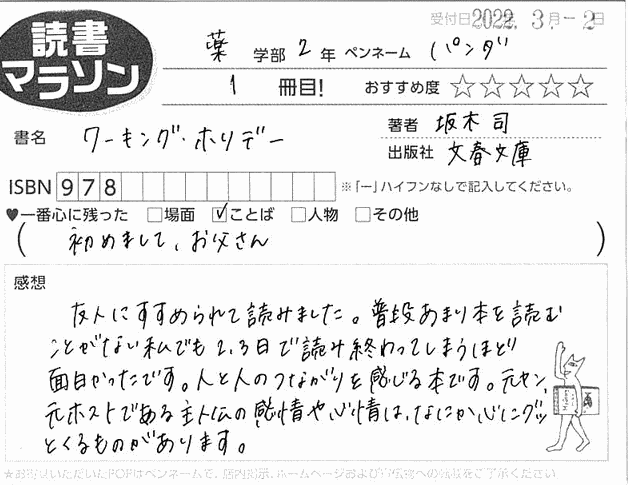 読書
マラソン
受付日 2022. 3. - 2
薬 学部 2 年 ペンネーム パンダ
1 冊目! おすすめ度 ☆☆☆☆☆
書名 ワーキング・ホリデー
著者 坂木 司
出版社 文春文庫
ISBN 978 ※「ー」ハイフンなしで記入してください。
♥一番心に残った □場面 ☑ことば □人物 □その他
( 初めまして、お父さん )
感想
友人にすすめられて読みました。普段あまり本を読む
ことがない私でも2,3日で読み終わってしまうほど
面白かったです。人と人のつながりを感じる本です。元ヤン、
元ホストである主人公の感情や心情は、なにか心にグッ
とくるものがあります。
★お寄せいただいたPOPはペンネームで、店内掲示、ホームページおよび への転載をご了承ください